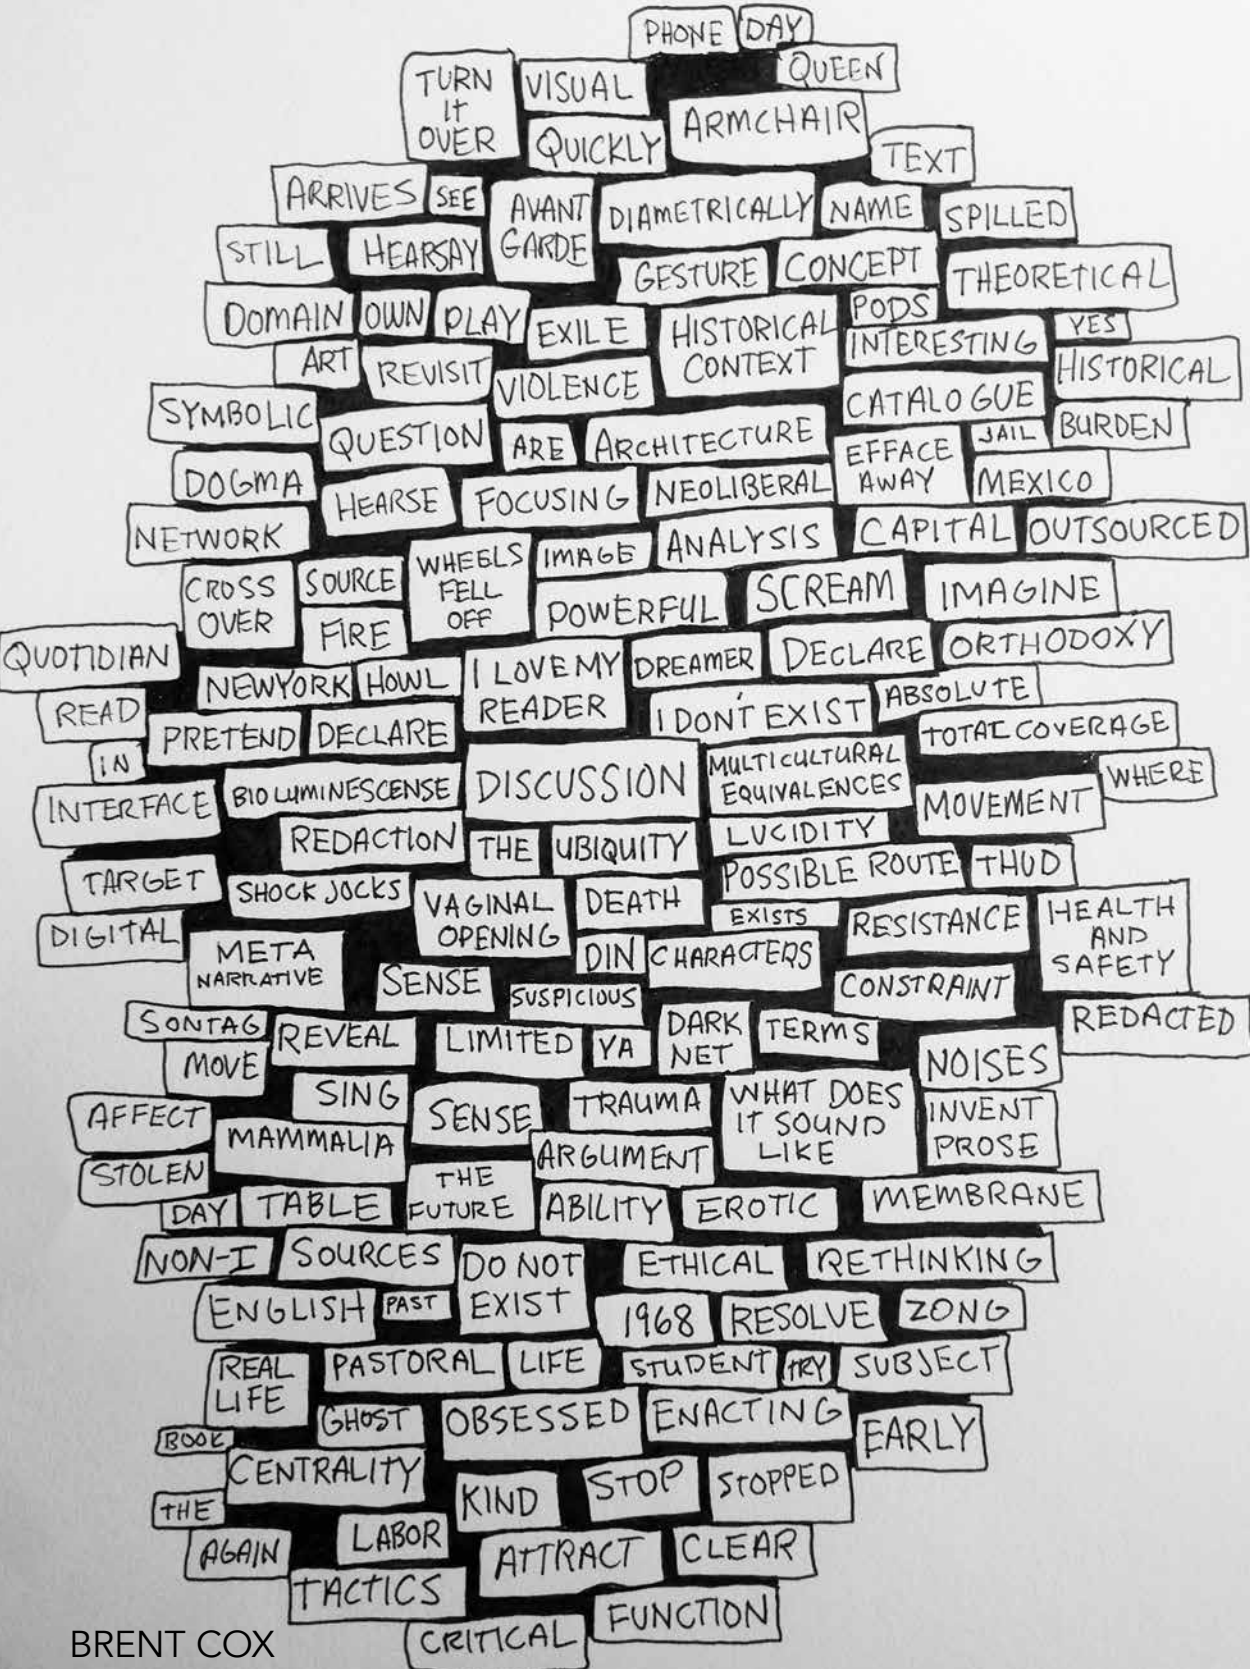 PHONE DAY
QUEEN
TURN IT OVER VISUAL
QUICKLY ARMCHAIR
TEXT
ARRIVES SEE AVANT GARDE DIAMETRICALLY NAME SPILLED
STILL HEARSAY GESTURE CONCEPT THEORETICAL
DOMAIN OWN PLAY EXILE HISTORICAL CONTEXT PODS YES
ART REVISIT VIOLENCE INTERESTING HISTORICAL
SYMBOLIC QUESTION ARE ARCHITECTURE CATALOGUE BURDEN
DOGMA HEARSE FOCUSING NEOLIBERAL EFFACE AWAY JAIL MEXICO
NETWORK WHEELS FELL OFF IMAGE ANALYSIS CAPITAL OUTSOURCED
CROSS OVER SOURCE POWERFUL SCREAM IMAGINE
FIRE
QUOTIDIAN NEWYORK HOWL I LOVE MY READER DREAMER DECLARE ORTHODOXY
READ PRETEND DECLARE I DON'T EXIST ABSOLUTE
TOTAL COVERAGE
IN
INTERFACE BIOLUMINESCENSE DISCUSSION MULTICULTURAL EQUIVALENCES MOVEMENT WHERE
REDACTION THE UBIQUITY LUCIDITY
TARGET SHOCK JOCKS VAGINAL OPENING DEATH POSSIBLE ROUTE THUD
EXISTS RESISTANCE HEALTH AND SAFETY
DIGITAL META NARRATIVE SENSE DIN CHARACTERS CONSTRAINT
SUSPICIOUS
SONTAG REVEAL LIMITED YA DARK NET TERMS REDACTED
MOVE NOISES
SING SENSE TRAUMA WHAT DOES IT SOUND LIKE INVENT PROSE
AFFECT MAMMALIA ARGUMENT
STOLEN THE FUTURE
DAY TABLE ABILITY EROTIC MEMBRANE
NON-I SOURCES DO NOT EXIST ETHICAL RETHINKING
ENGLISH PAST 1968 RESOLVE ZONG
REAL LIFE PASTORAL LIFE STUDENT TRY SUBJECT
GHOST OBSESSED ENACTING EARLY
BOOK
CENTRALITY KIND STOP STOPPED
THE
AGAIN LABOR ATTRACT CLEAR
TACTICS FUNCTION
CRITICAL
BRENT COX